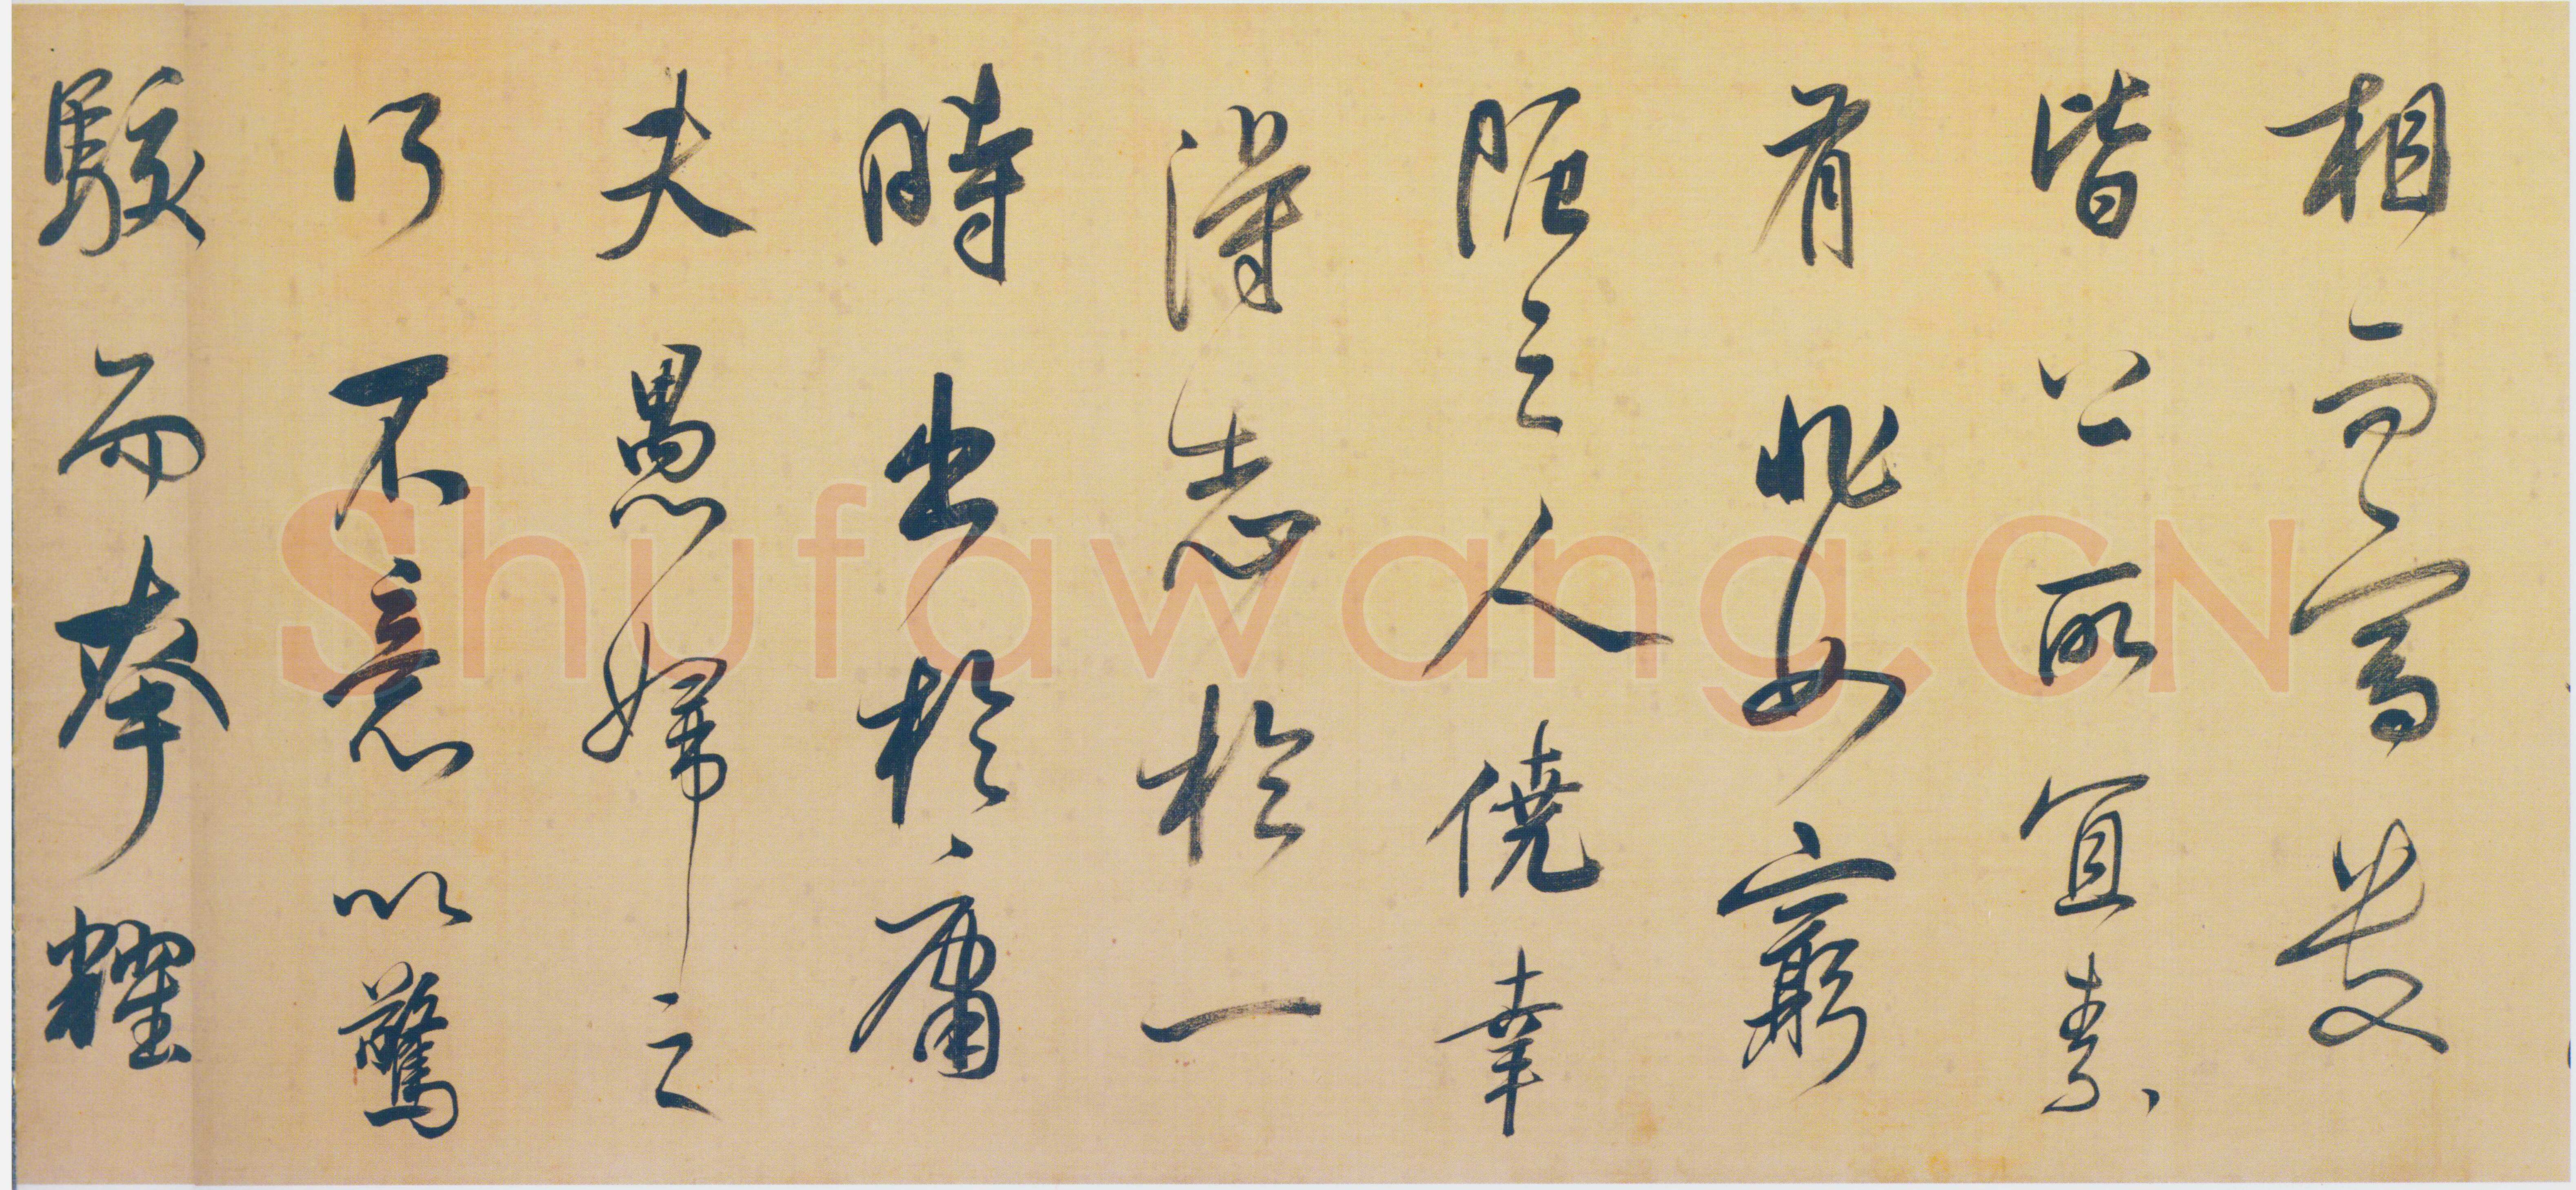 相而富貴
皆公所宜素
有非如窮
阨之人僥幸
得志於一
時出於庸
夫愚婦之
不意以驚
駭而夸耀
Shufawang.CN